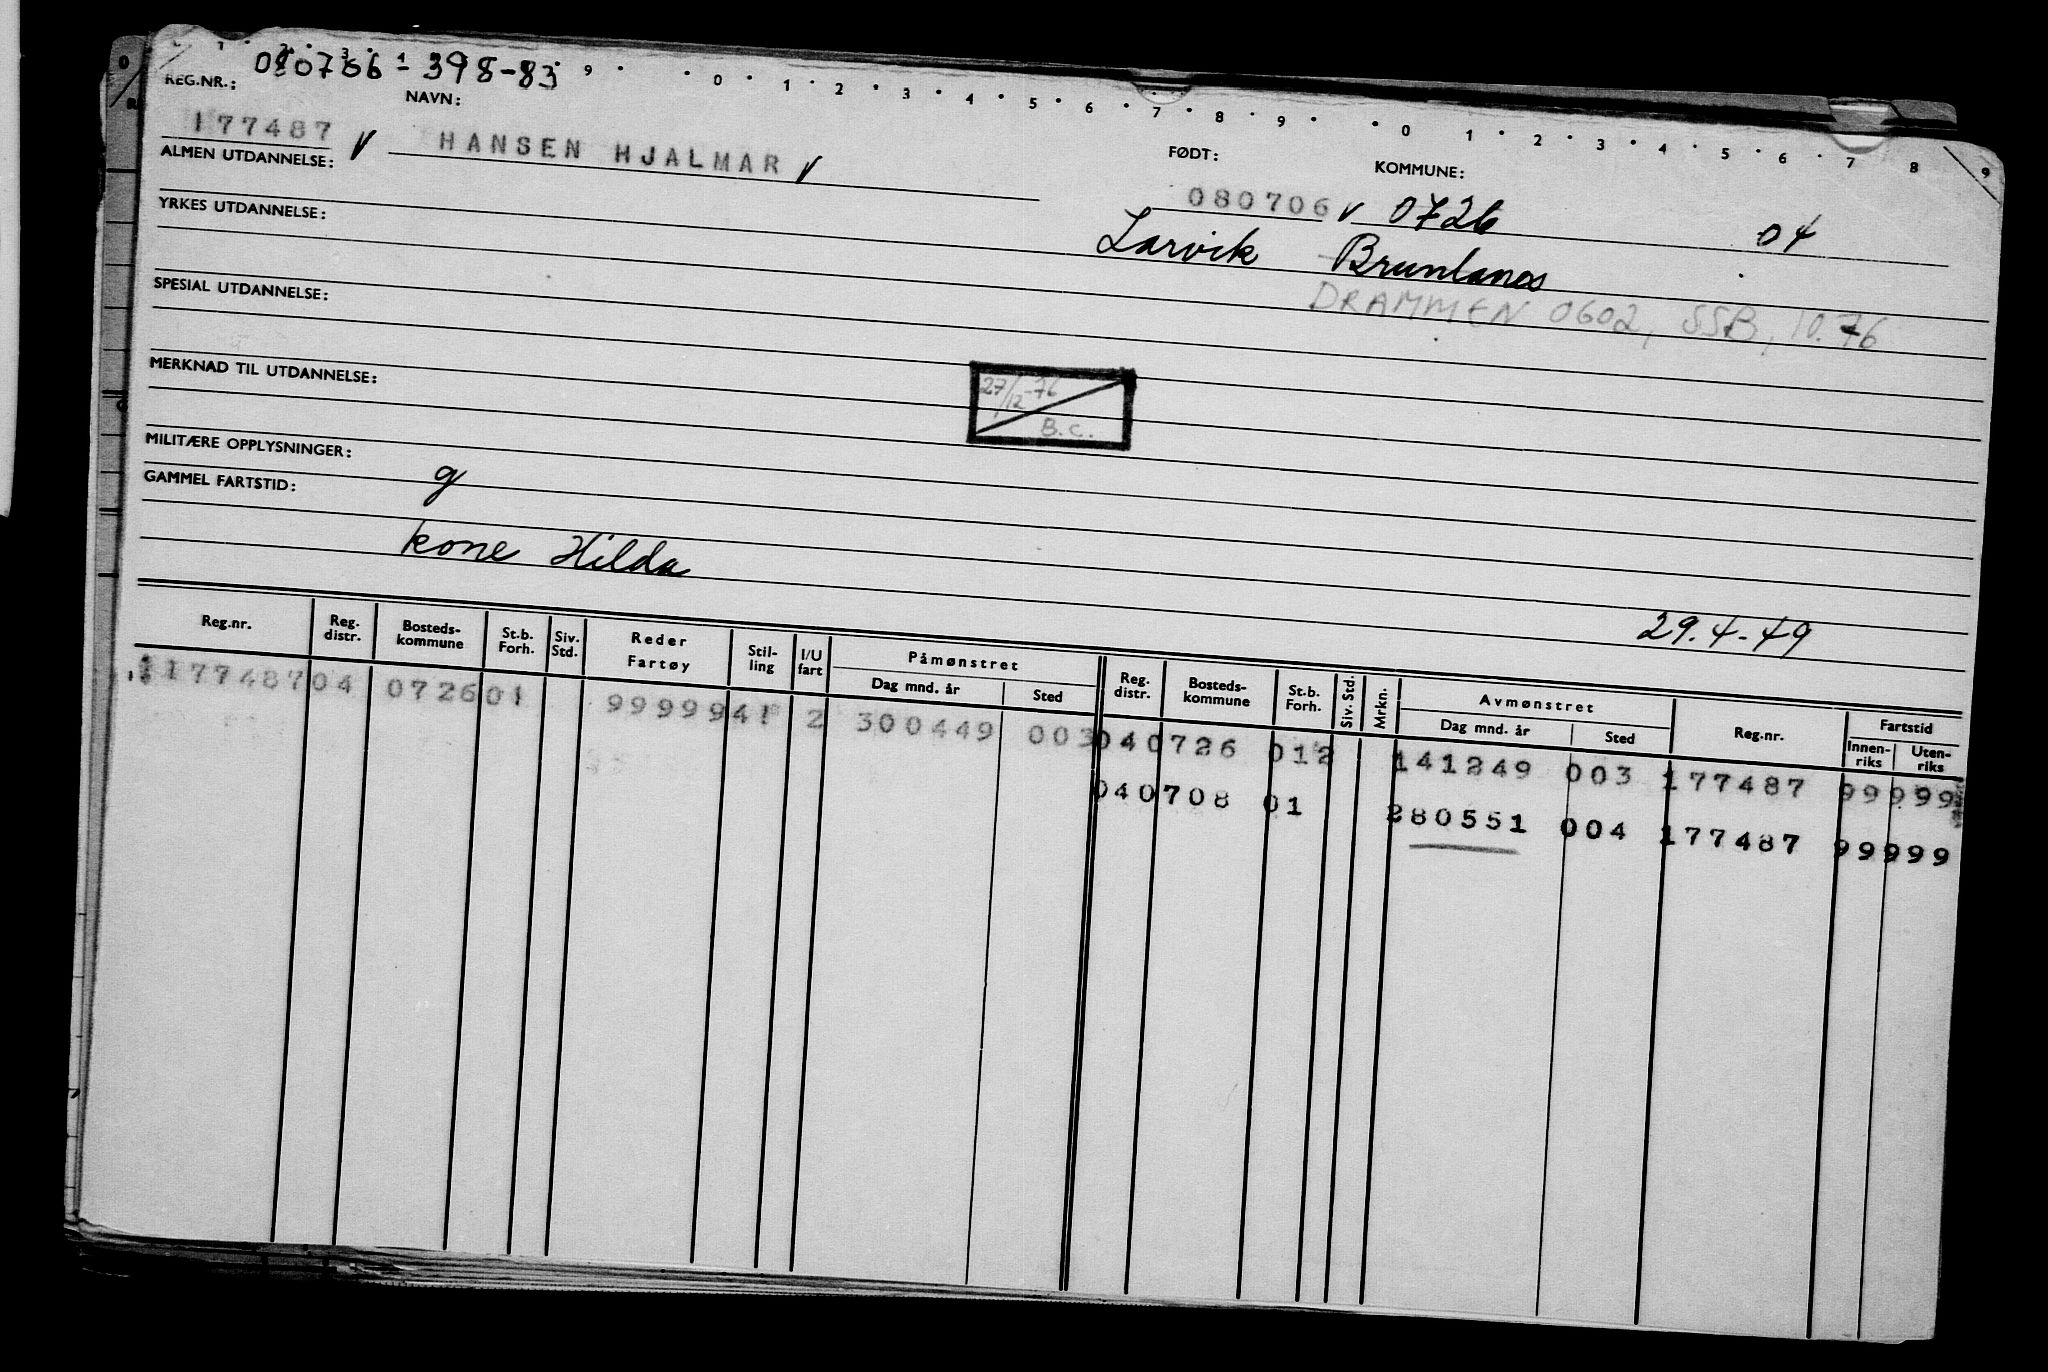 080706 - 398-83
0 1 2 3 4 5 6 7 8 9 0 1 2 3 4 5 6 7 8 9
REG.NR.: NAVN:
177487 V HANSEN HJALMAR V
FØDT: KOMMUNE:
080706 V 0726 04
ALMEN UTDANNELSE:
Larvik Brunlanes
YRKES UTDANNELSE:
DRAMMEN 0602, SSB, 10.76
SPESIAL UTDANNELSE:
27/12-76
B.C.
MERKNAD TIL UTDANNELSE:
MILITÆRE OPPLYSNINGER:
g
GAMMEL FARTSTID:
kone Hilda
29.4-49
Reg.nr. Reg. distr. Bosteds-kommune St.b. Forh. Siv. Std. Reder Fartøy Stil-ling I/U fart Påmønstret Dag mnd. år Sted Reg. distr. Bosteds-kommune St.b. Forh. Siv. Std. Mrkn. Avmønstret Dag mnd. år Sted Reg.nr. Fartstid Innen-riks Uten-riks
177487 04 0726 01 9999 941 2 300449 003 04 0726 012 141249 003 177487 99 999
04 0708 01 280551 004 177487 99 999